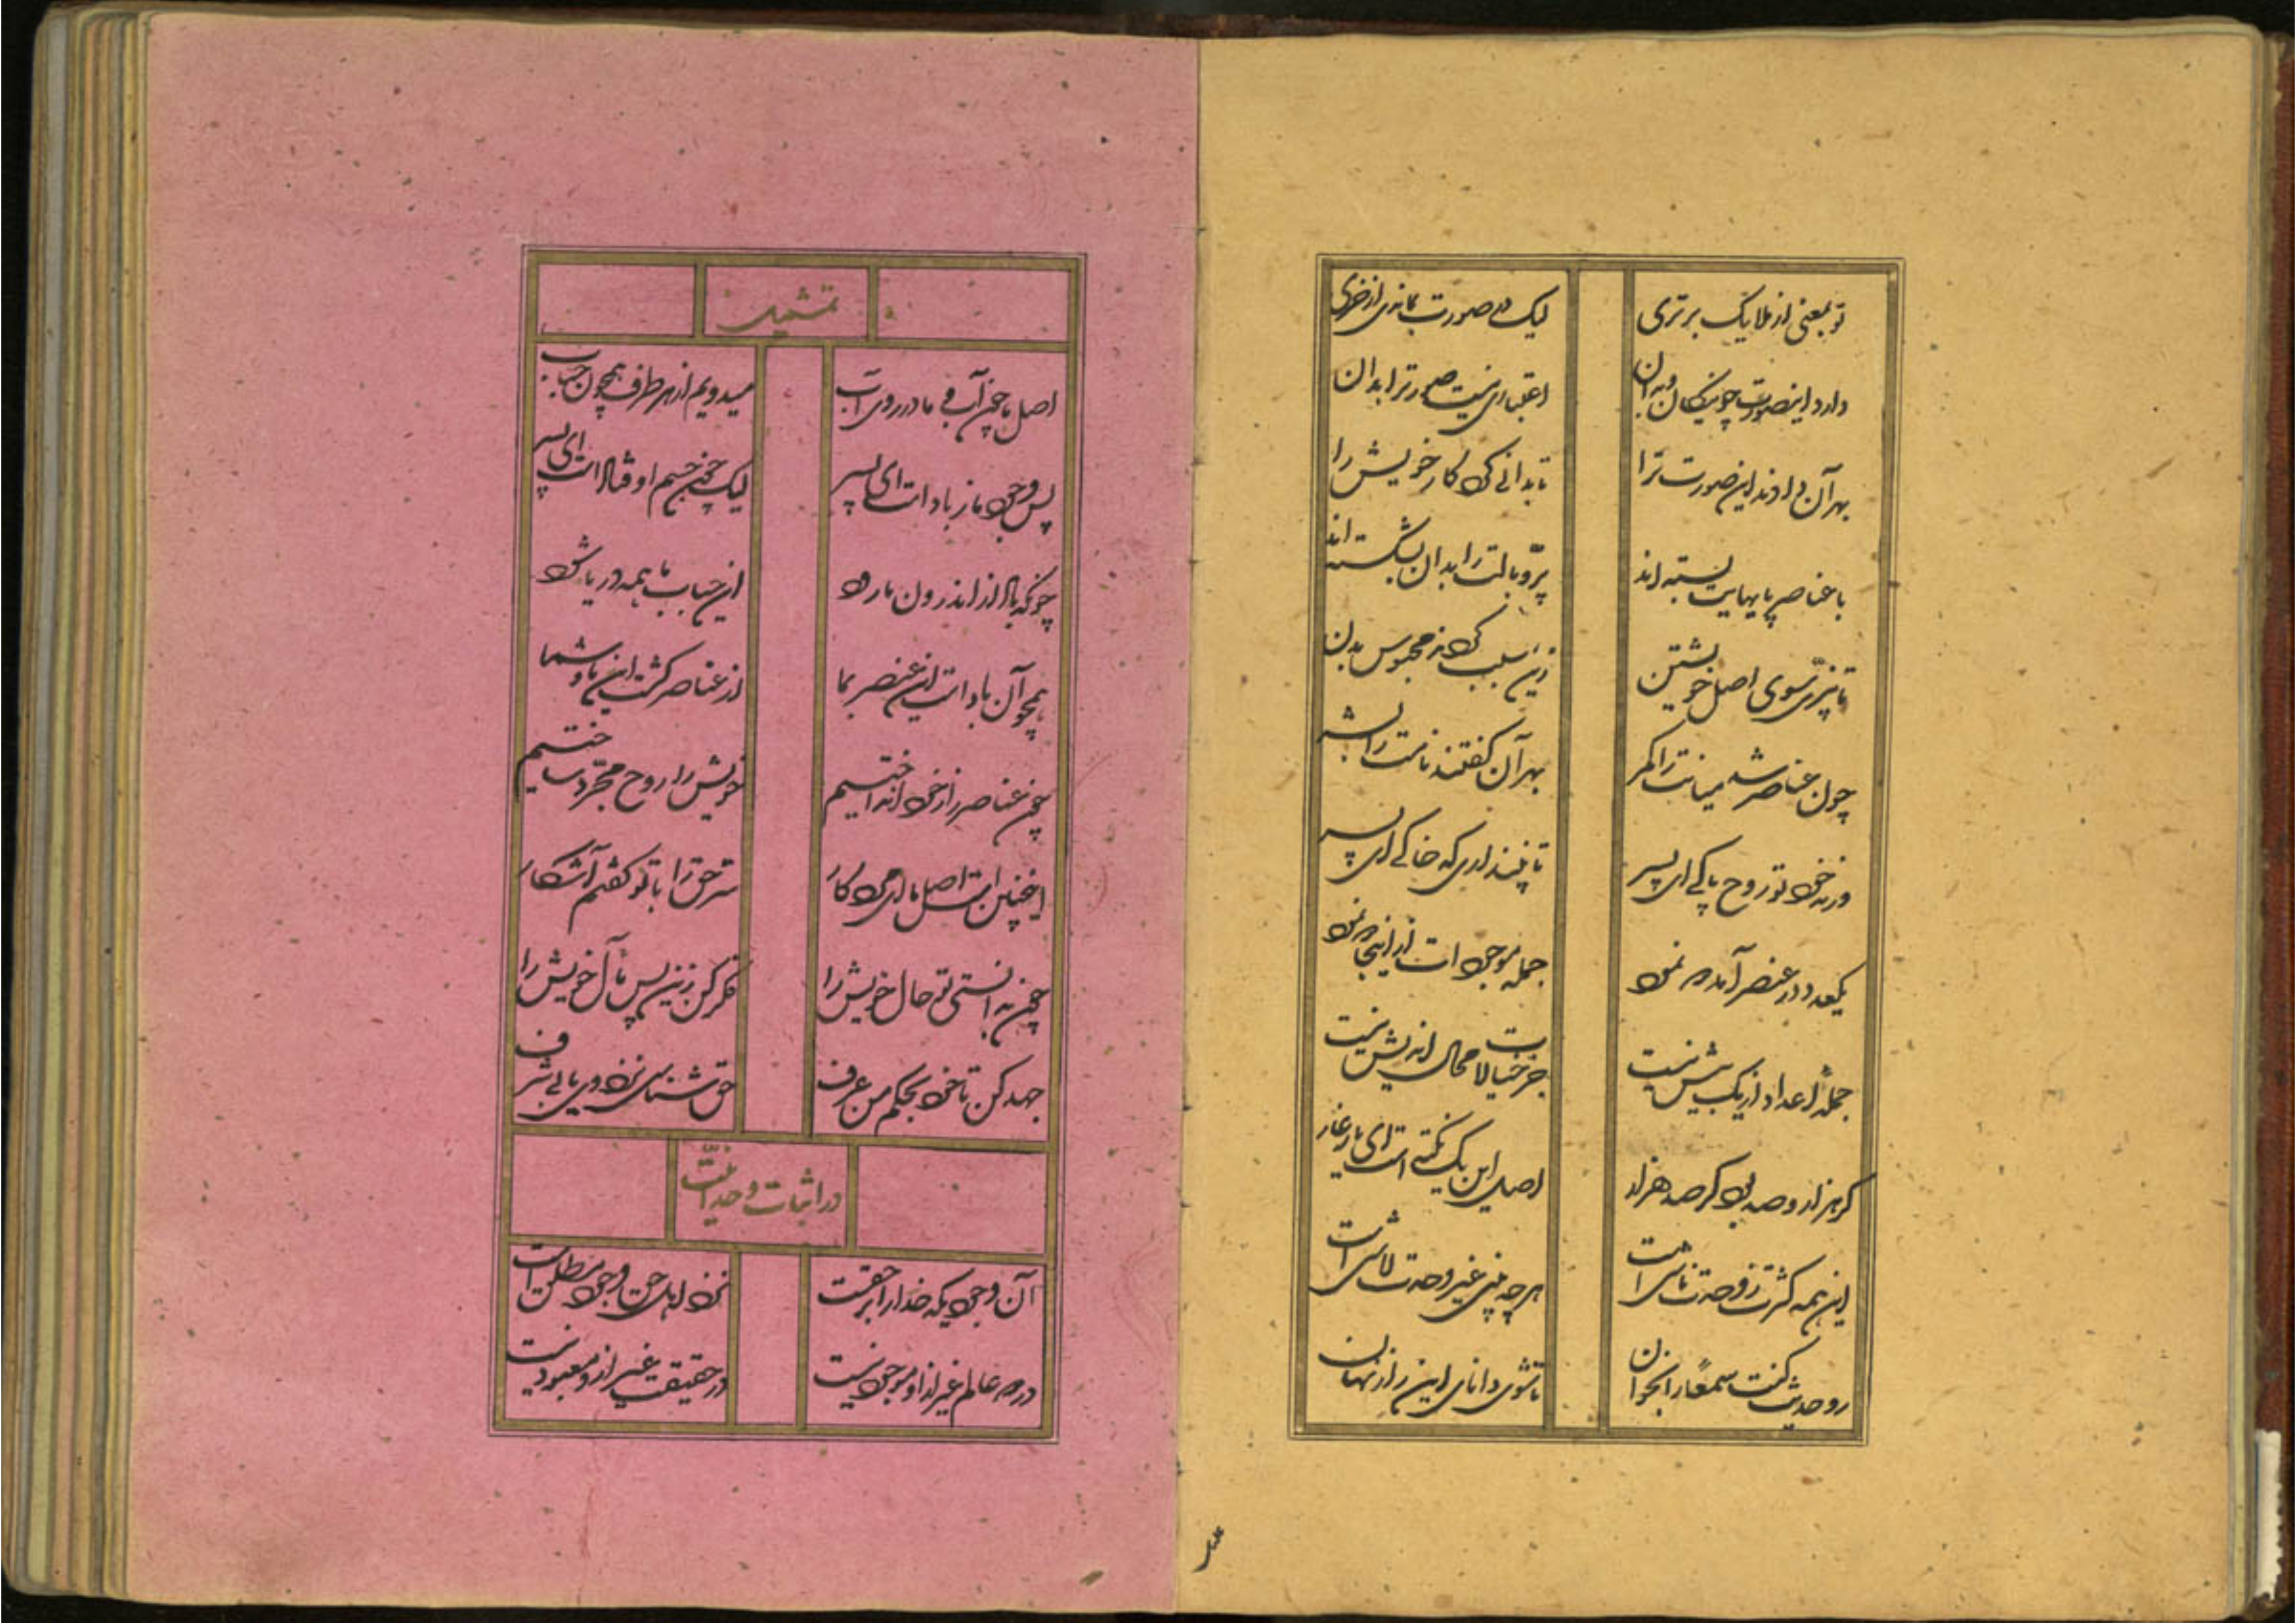 تو بمعنی از ملایک برتری لیک در صورت بمانی از خری
دارد این صورت چو نیکان و بدان اعتباری نیست صورت را بدان
بهر آن دادند این صورت ترا تا بدانی کرد کار خویش را
با عناصر پایهایت بسته‌اند پرّ و بالت را بدان بشکسته‌اند
تا نپرّی سوی اصل خویشتن زین سبب کردند محبوس بدن
چون عناصر شد میانت را کمر بهر آن گفتند نامت را بشر
ورنه خود تو روح پاکی ای پسر تا نپنداری که خاکی ای پسر
یکعدد در عنصر آمد در نمود جمله موجود است از اینجا در نمود
جملهٔ اعداد از یک بیش نیست جز خیالات محال اندیش نیست
گر هزار و صد بود گر صد هزار اصل این یک نکته است ای یار غار
این همه کثرت ز وحدت ناشی است هر چه بینی غیر وحدت لاشی است
رو حدیث کنت سمعاً را بخوان تا شوی دانای این راز نهان
تمثیل
اصل ما چون آب و ما در روی آب میدویم از هر طرف همچون حباب
پس وجود ما ز باد است ای پسر لیک چون جسم اوفتاد است ای پسر
چونکه باد از اندرون ما رود این حباب ما همه دریا شود
همچو آن باد است این عنصر بما از عناصر گشت این ما و شما
چون عناصر را ز خود انداختیم خویش را روح مجرّد ساختیم
اینچنین است اصل ما ای مرد کار سرّ حق را با تو گفتم آشکار
چون بدانستی تو حال خویش را فکر کن زین پس مآل خویش را
جهد کن تا خود بحکم من عرف حق شناسی نزد وی یابی شرف
در اثبات وحدانیّت
آن وجودیکه خدا را بر حقست نزد اهل حق وجود مطلق است
در همه عالم غیر از او موجود نیست در حقیقت غیر ازو معبود نیست